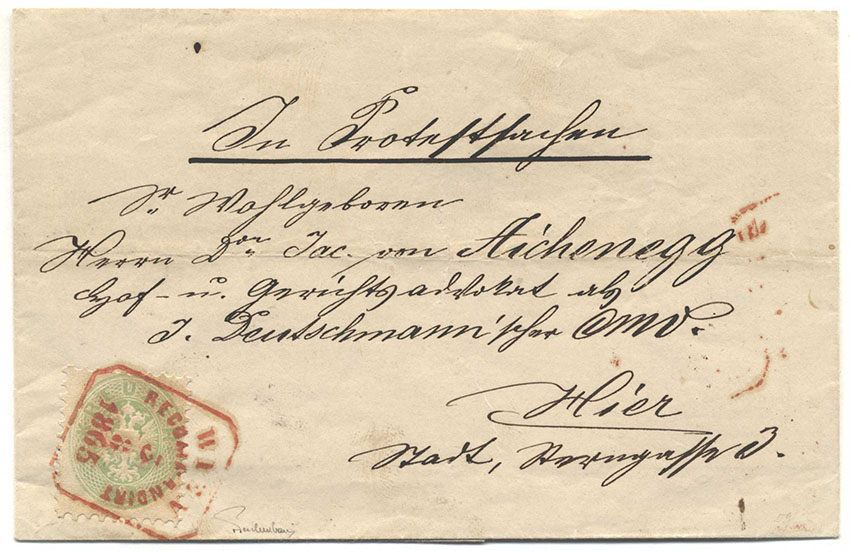 In Protestsachen
Sr Wohlgeboren
Herrn Dor Jac. von Aichenegg
Hof- u. Gerichtsadvokat als
J. Deutschmann'scher Cmv.
Hier
Stadt, Sterngasse 3.
WIEN
RECOMMANDIRT
1865